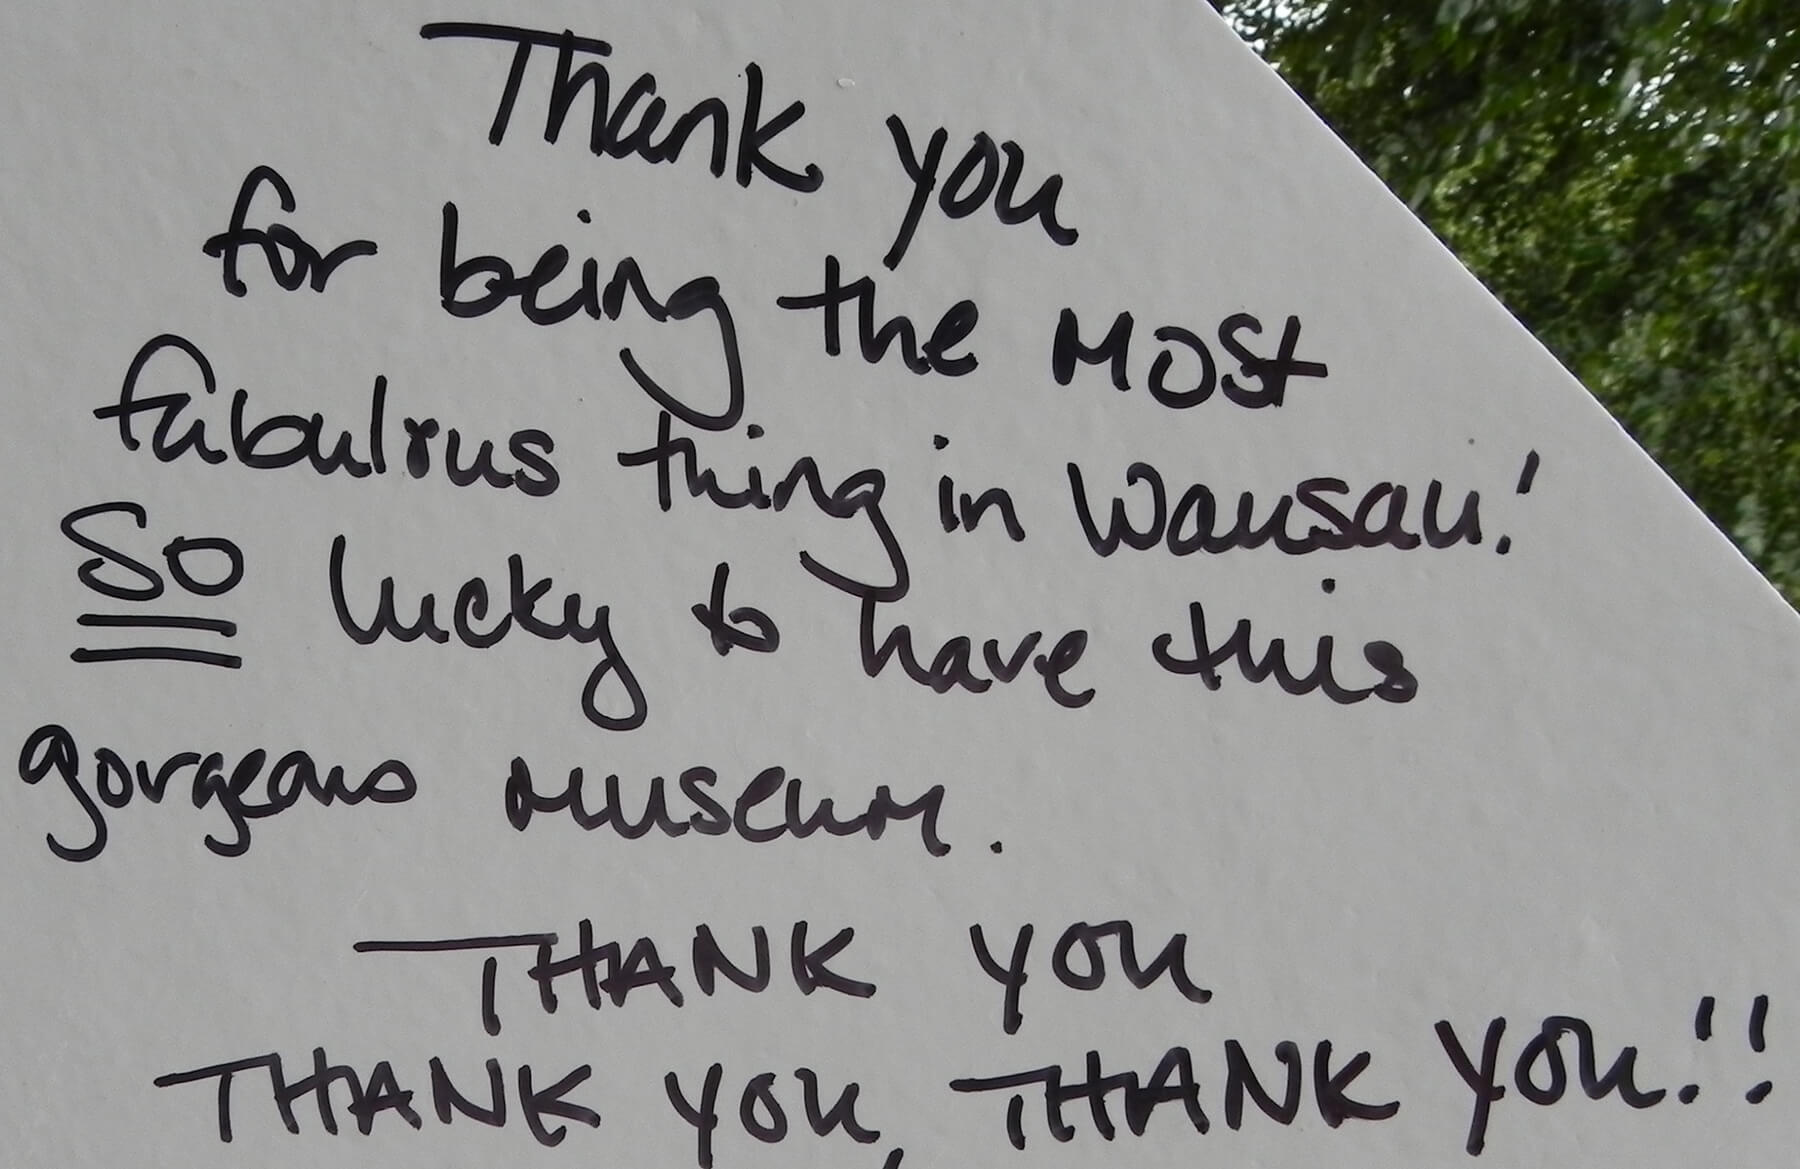 Thank you
for being the MOST
fabulous thing in Wausau!
SO lucky to have this
gorgeous museum.
THANK YOU
THANK YOU, THANK YOU!!